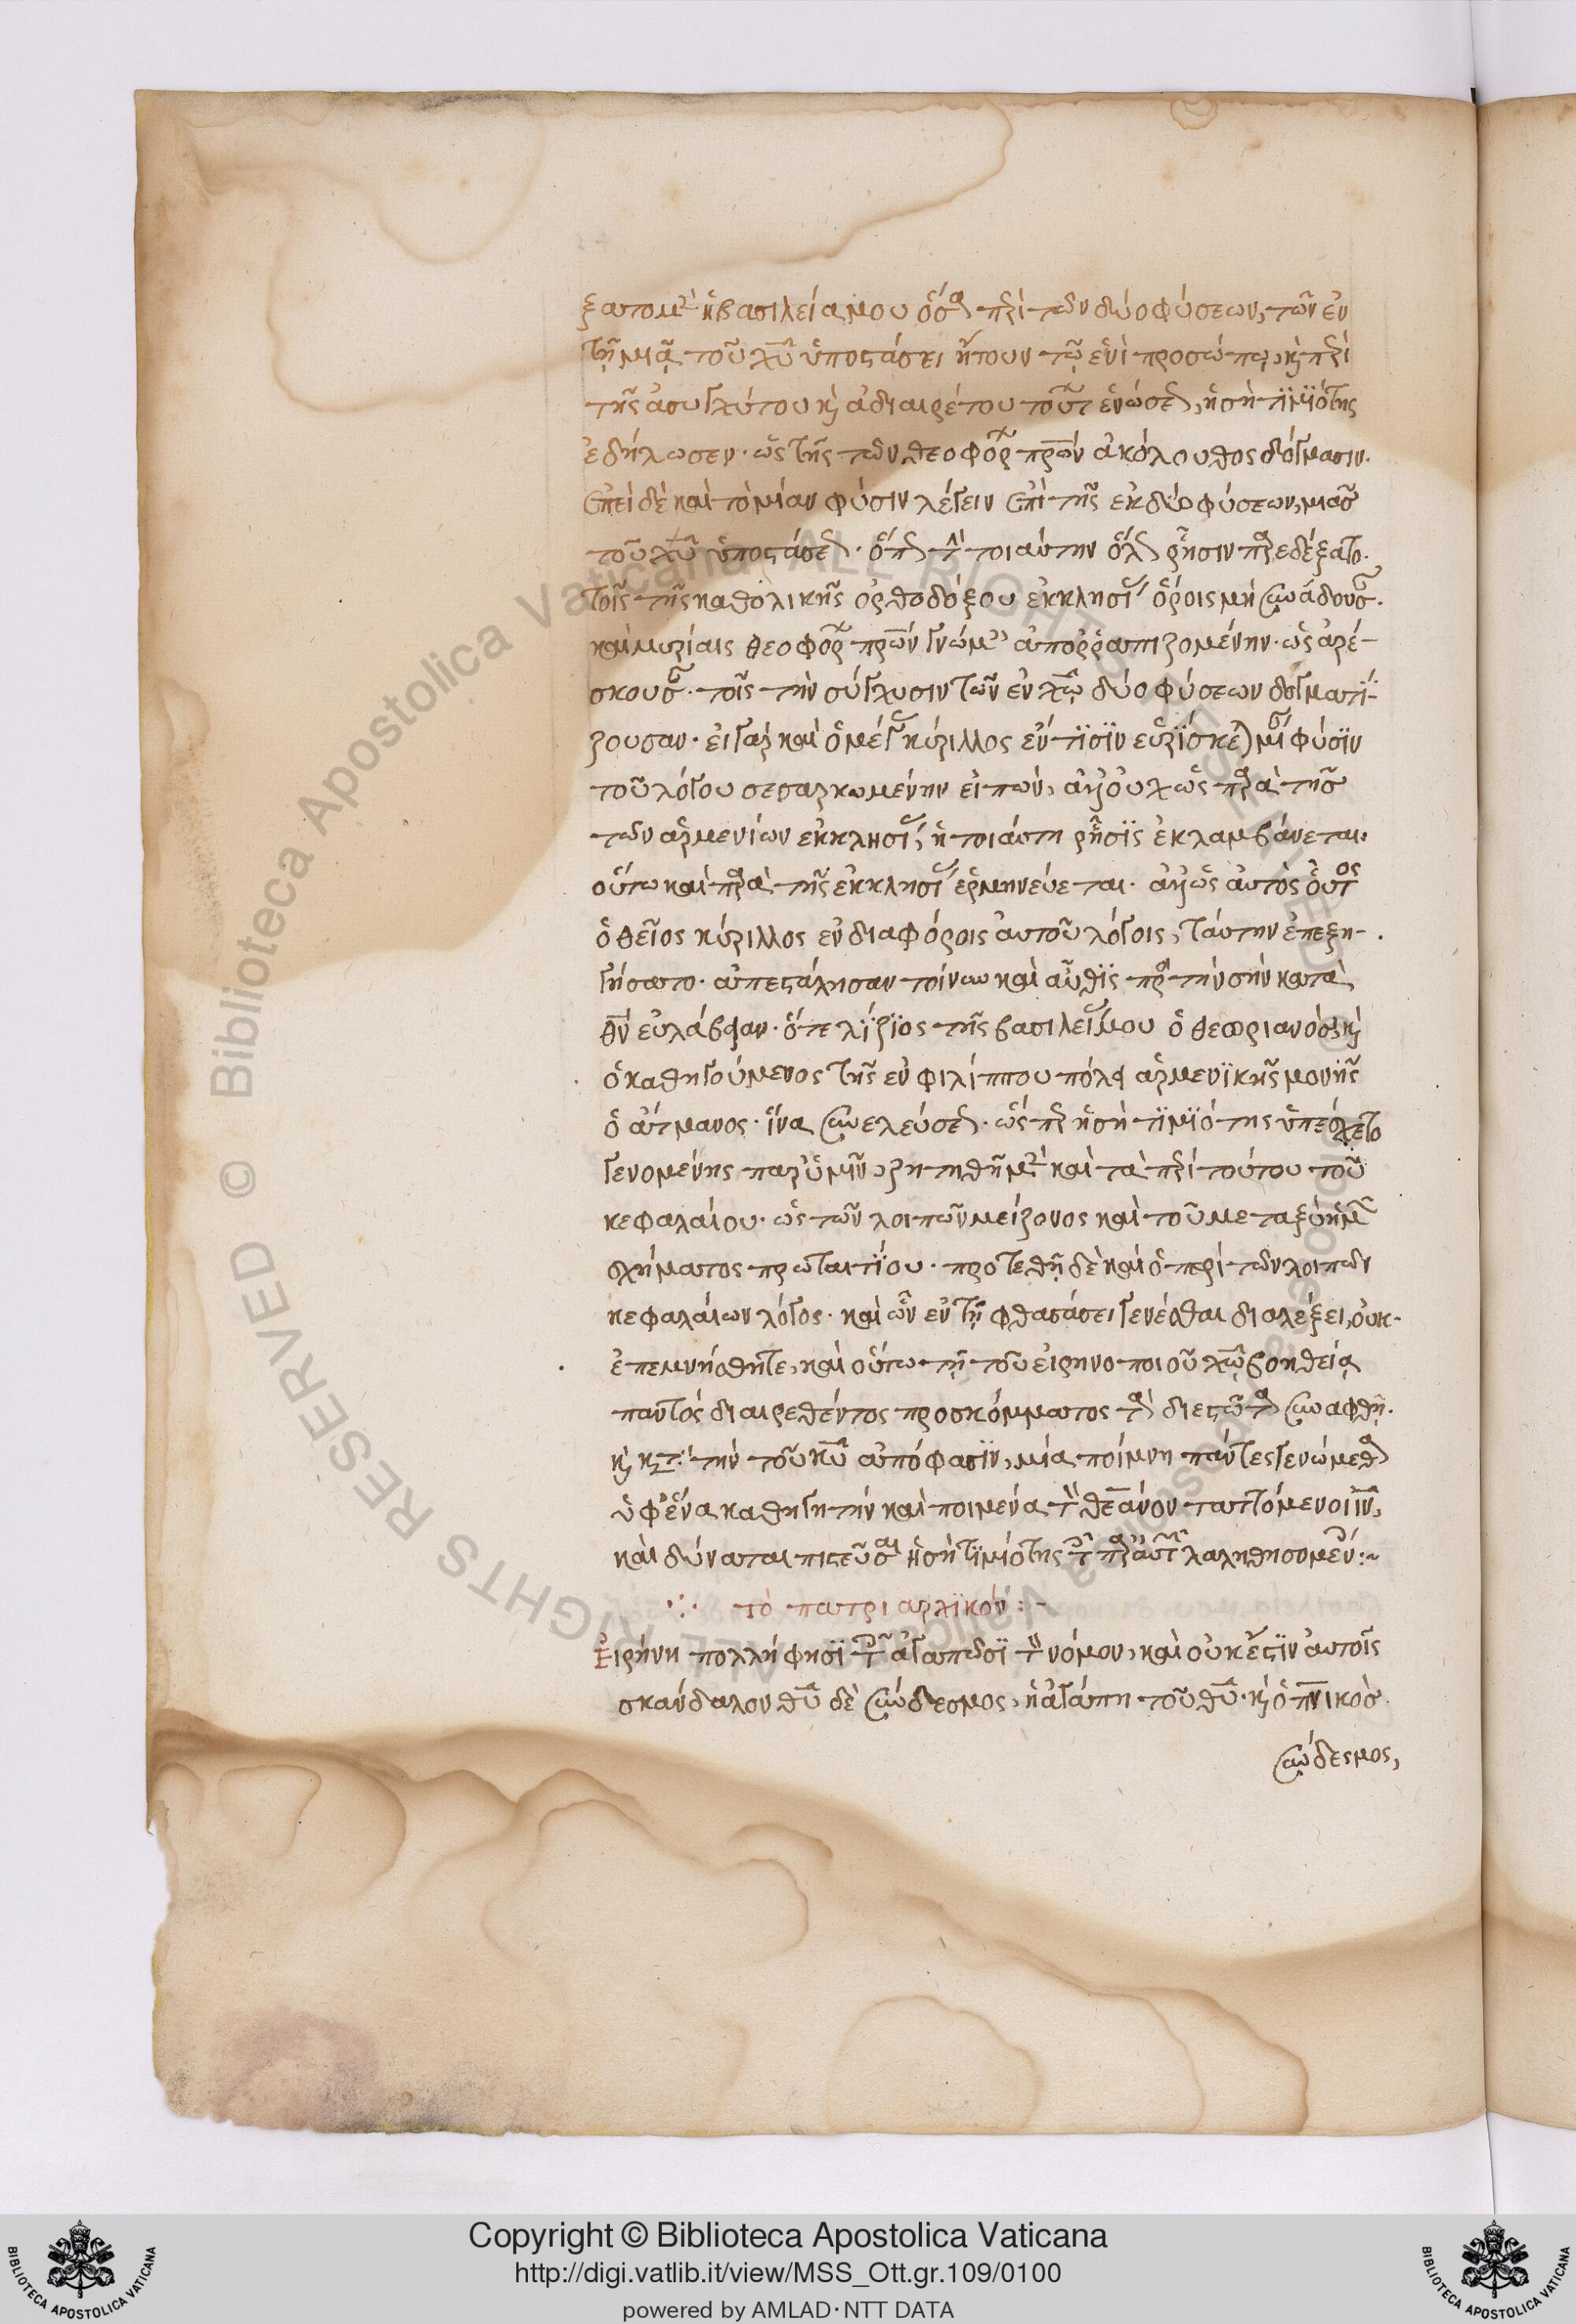 ξατο μὲν ἡ βασιλεία μου ὅσα περὶ τῶν δύο φύσεων, τῶν ἐν
τῇ μιᾷ τοῦ χυ ὑποστάσει ἤτουν τῷ ἑνὶ προσώπῳ, καὶ περὶ
τῆς ἀσυγχύτου καὶ ἀδιαιρέτου τούτων ἑνώσεως, ἡ σὴ τϊμϊότης
ἐδήλωσεν· ὡς τῆς τῶν θεοφόρων πρων ἀκόλουθος δόγμασιν.
ἐπεὶ δὲ καὶ τὸ μίαν φύσιν λέγειν ἐπὶ τῆς ἐκ δύο φύσεων, μιᾶς
τοῦ χυ ὑποστάσεως· ὅπως τὴν τοιαύτην ὅλως ῥῆσιν παρεδέξατο.
τοῖς τῆς καθολικῆς ὀρθοδόξου ἐκκλησίας ὅροις μὴ συνάδουσαν.
καὶ μυρίαις θεοφόρων πρων γνώμαις ἀπορραπιζομένην· ὡς ἀρέ-
σκουσαν· τοῖς τὴν σύγχυσιν τῶν ἐν χω δύο φύσεων δογματί-
ζουσαν· εἰ γὰρ καὶ ὁ μέγας κύριλλος ἔν τϊσϊν εὑρϊσκεται μίαν φύσϊν
τοῦ λόγου σεσαρκωμένην εἰπών, ἀλλ' οὐχ ὡς παρὰ τῆς
τῶν ἀρμενίων ἐκκλησίας, ἡ τοιαύτη ῥῆσϊς ἐκλαμβάνεται.
οὕτω καὶ παρὰ τῆς ἐκκλησίας ἑρμηνεύεται· ἀλλ' ὡς αὐτὸς οὗτος
ὁ θεῖος κύριλλος ἐν διαφόροις αὐτοῦ λόγοις, ταύτην ἐπεξη-
γήσατο· ἀπεστάλησαν τοίνυν καὶ αὖθϊς πρὸς τὴν σὴν κατὰ
θν εὐλάβειαν· ὅ τε λίζϊος τῆς βασιλείας μου ὁ θεωριανὸς, καὶ
ὁ καθηγούμενος τῆς ἐν φιλίππου πόλει ἀρμενϊκῆς μονῆς
ὁ ἀτμανος· ἵνα συνελεύσεως· ὥσπερ ἡ σὴ τϊμϊότης ὑπέσχετο
γενομένης παρ' ὑμῖν, ζητηθῇ μὲν καὶ τὰ περὶ τούτου τοῦ
κεφαλαίου· ὡς τῶν λοιπῶν μείζονος καὶ τοῦ μεταξὺ ἡμῶν
σχήματος πρωταιτϊου· προτεθῇ δὲ καὶ ὁ περὶ τῶν λοιπῶν
κεφαλαίων λόγος· καὶ ὧν ἐν τῇ φθασάσει γενέσθαι διαλέξει, οὐκ
ἐπεμνήσθητε, καὶ οὕτω τῇ τοῦ εἰρηνοποιοῦ χω βοηθείᾳ
παντὸς διαιρεθέντος προσκόμματος τὰ διεστῶτα συναφθῇ.
καὶ κατὰ τὴν τοῦ κυ ἀπόφασϊν, μία ποίμνη πάντες γενώμεθα
ὑφ' ἕνα καθηγητὴν καὶ ποιμένα τὸν θεάνον ταττόμενοι ιν,
καὶ δύναται πιστεῦσαι ἡ σὴ τϊμϊότης τοῖς παρ' αὐτῶν λαληθησομένοις:~
∴ τὸ πατριαρχϊκόν:~
Εἰρήνη πολλή φησϊ τοῖς ἀγαπῶσϊ τὸν νόμον, καὶ οὐκ ἔστϊν αὐτοῖς
σκάνδαλον θυ δὲ σύνδεσμος, ἡ ἀγάπη τοῦ θυ· καὶ ὁ πνικὸς
σύνδεσμος,
Copyright © Biblioteca Apostolica Vaticana
http://digi.vatlib.it/view/MSS_Ott.gr.109/0100
powered by AMLAD·NTT DATA